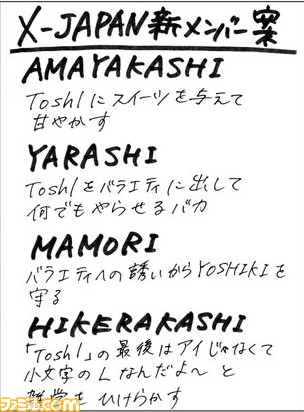 X-JAPAN新メンバー案
AMAYAKASHI
Toshlにスイーツを与えて
甘やかす
YARASHI
Toshlをバラエティに出して
何でもやらせるバカ
MAMORI
バラエティへの誘いからYOSHIKIを
守る
HIKERAKASHI
「Toshl」の最後はアイじゃなくて
小文字のLなんだよ〜と
雑学をひけらかす
ファミ通.com